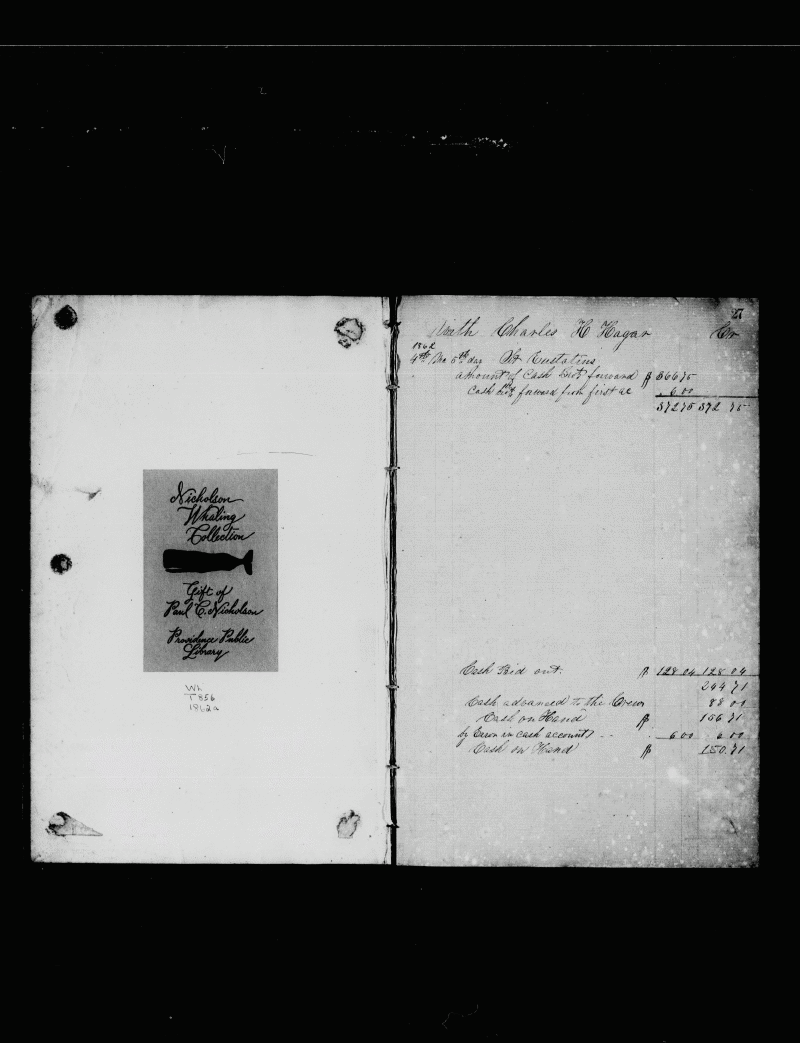 Nicholson
Whaling
Collection
Gift of
Paul C. Nicholson
Providence Public
Library
Wh
T856
1862a
27
With Charles H Hagar Cr
1862
4th Mo 5th day St Eustatius
amount of Cash brot forward $ 366 75
Cash brot forward from first ac 6 00
372 75 372 75
Cash Paid out. $ 128 04 128 04
244 71
Cash advanced to the Crew 88 00
Cash on Hand $ 156 71
by Error in cash account 6 00 6 00
Cash on Hand $ 150.71